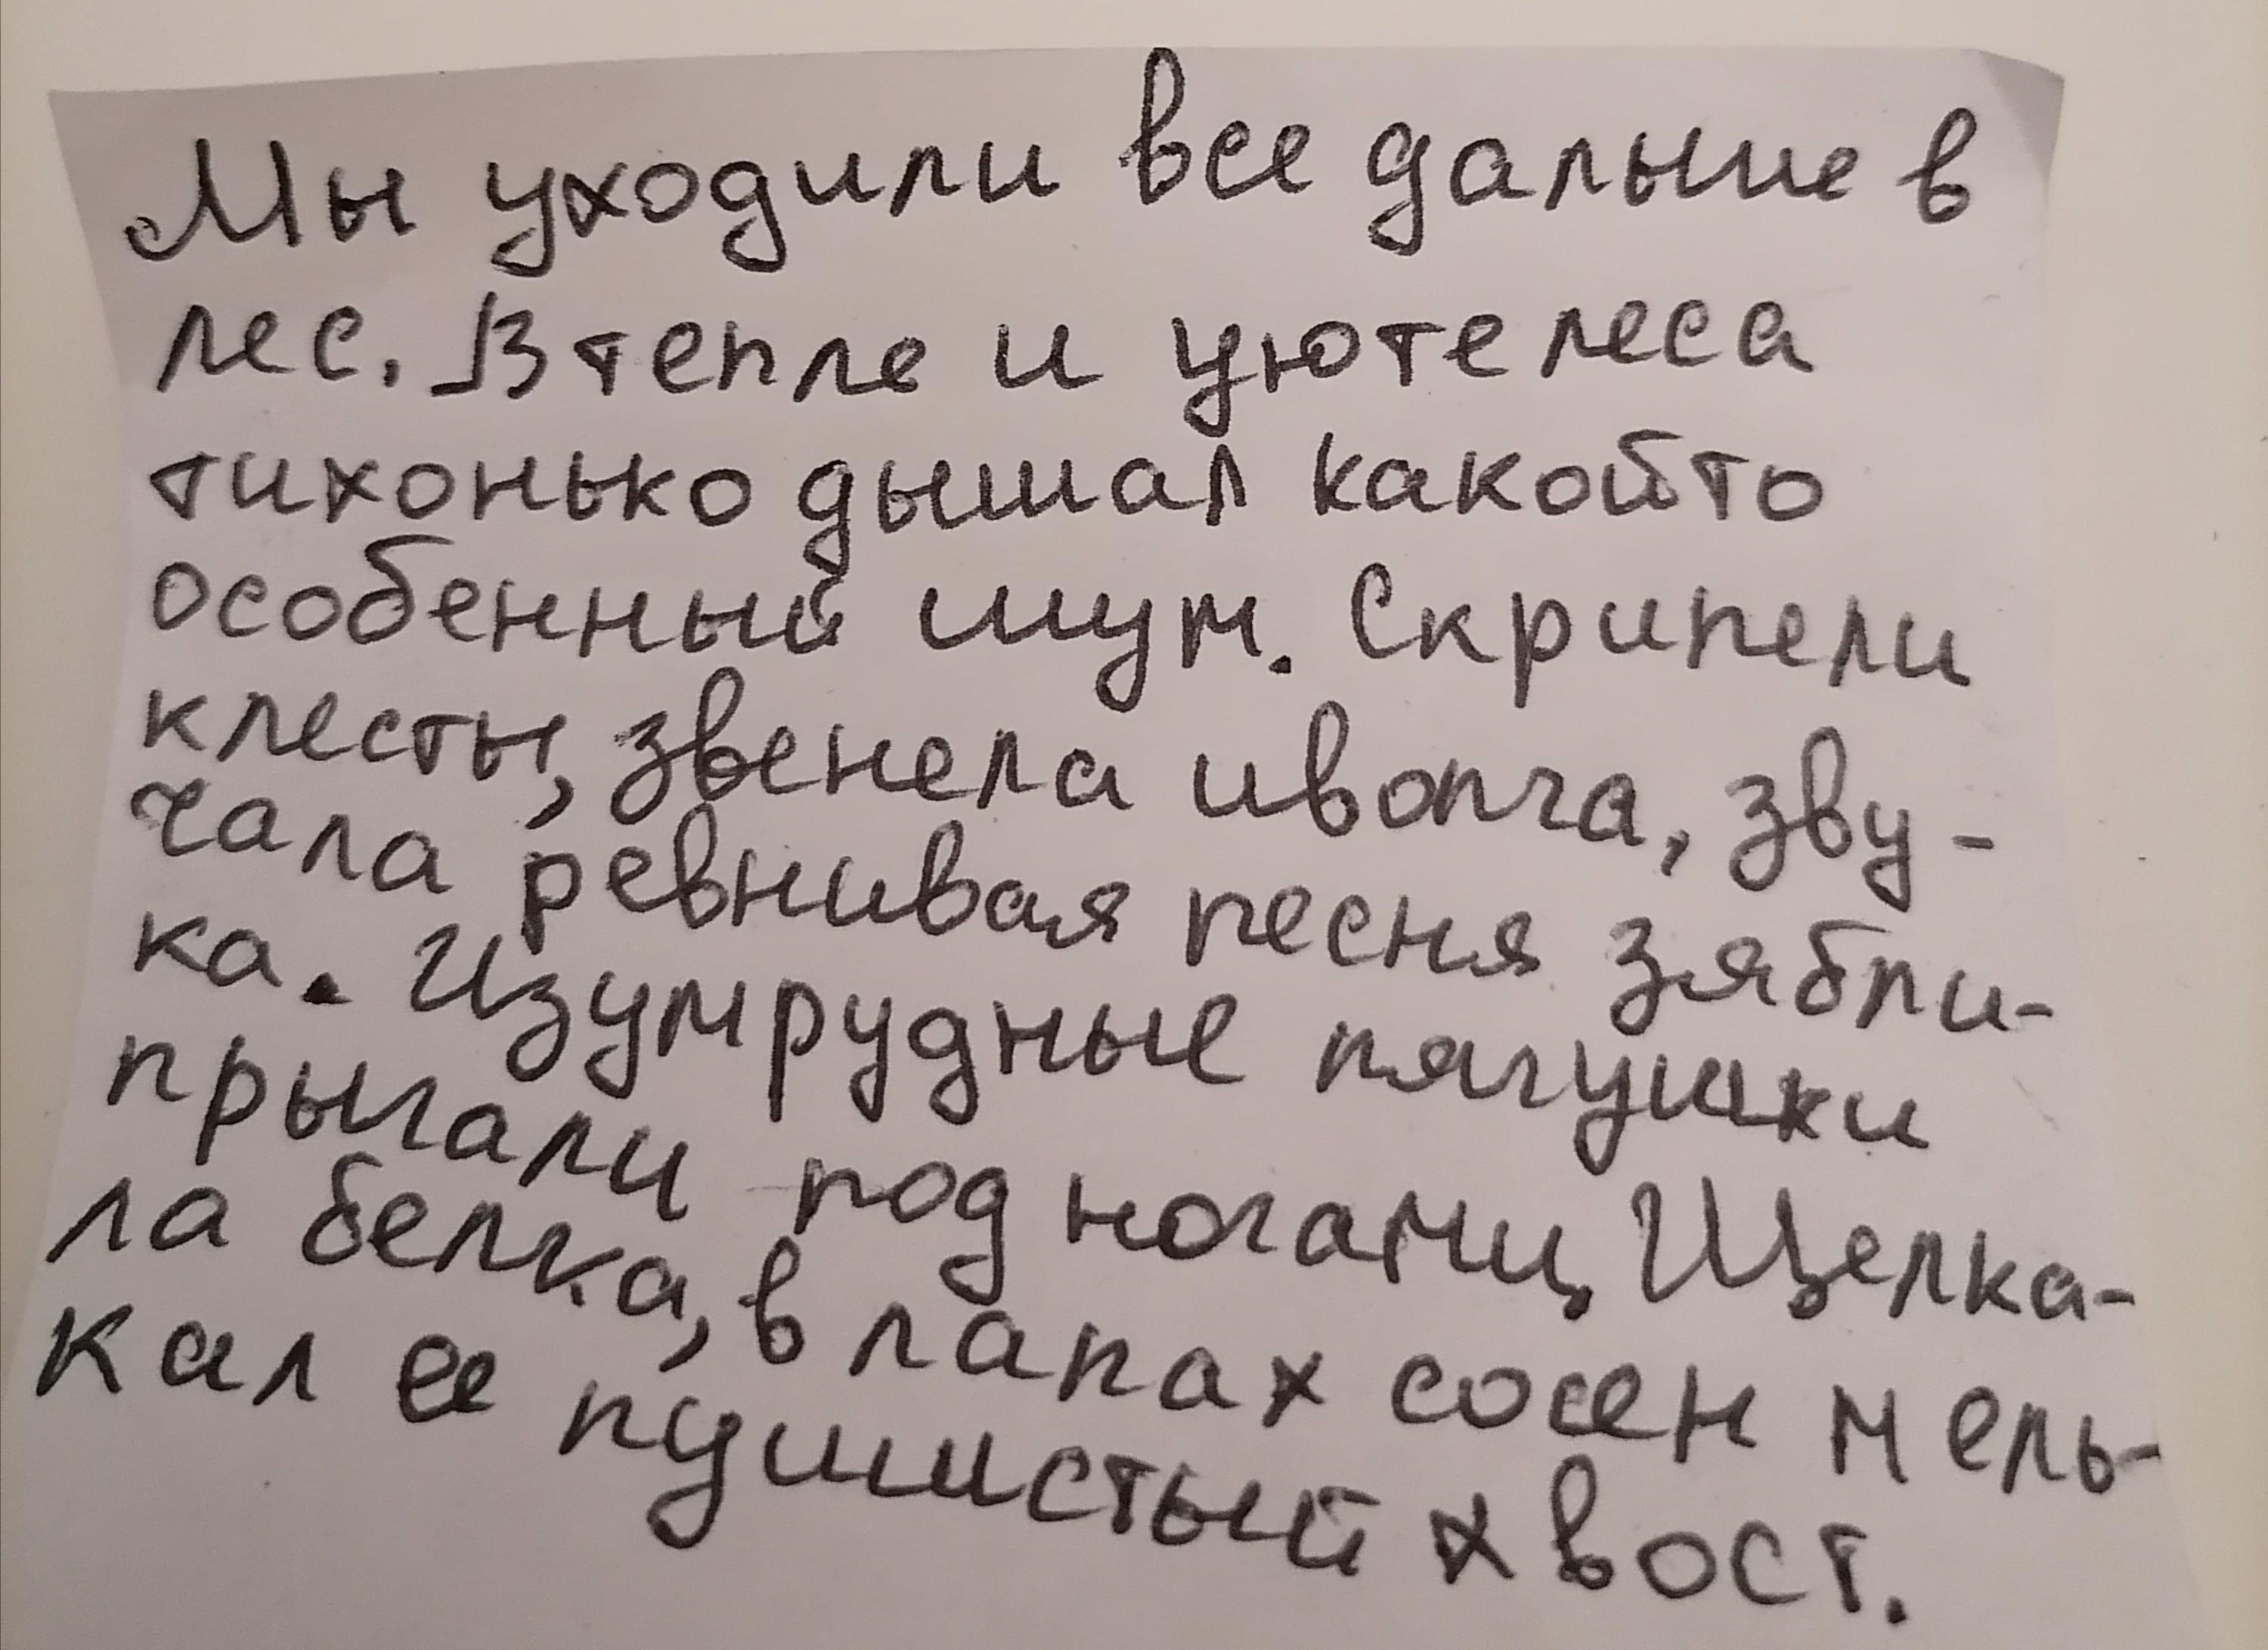 Мы уходили все дальше в
лес. В тепле и уюте леса
тихонько дышал какойто
особенный шум. Скрипели
клесты, звенела иволга, зву-
чала ревнивая песня зябли-
ка. Изумрудные лягушки
прыгали под ногами. Щелка-
ла белка, в лапах сосен мель-
кал ее пушистый хвост.